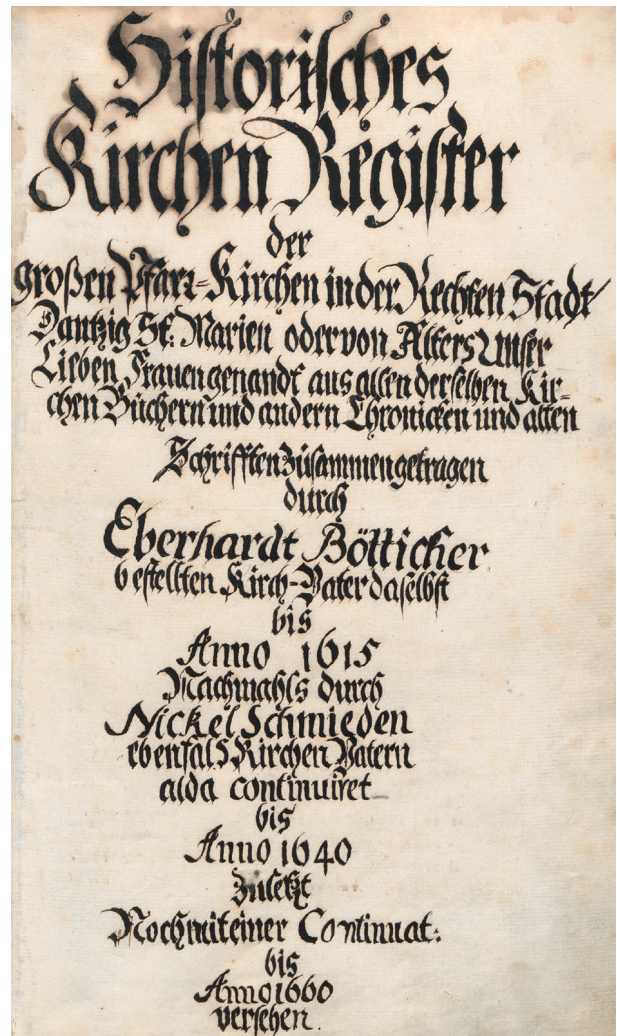 Historisches
Kirchen Register
der
großen Pfarr-Kirchen in der Rechten Stadt
Dantzig St: Marien oder von Alters Unser
Lieben Frauen genandt aus allen derselben Kir-
chen Büchern und andern Chronicken und alten
Schrifften züsammengetragen
durch
Eberhardt Bötticher
bestellten Kirch-Vater daselbst
bis
Anno 1615
Nachmahls durch
Nickel Schmieden
ebenfals Kirchen Vatern
alda continuiret
bis
Anno 1640
zületzt
Noch mit einer Continuat:
bis
Anno 1660
versehen.